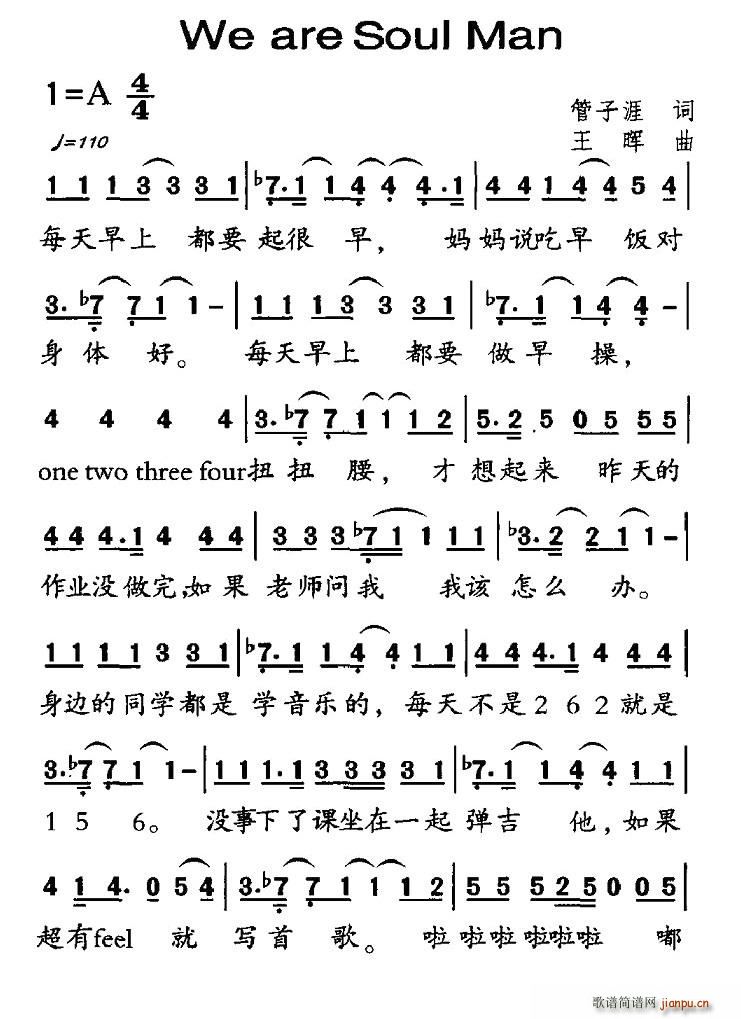 We are Soul Man
1=A 4/4
管子涯 词
♩=110
王 晖 曲
1 1 1 3 3 3 3 1 | ♭7. 1 1 4 4 4. 1 | 4 4 1 4 4 5 4 |
每天早上 都要起很 早， 妈妈说吃早 饭对
3. ♭7 7 1 1 - | 1 1 1 3 3 3 3 1 | ♭7. 1 1 4 4 - |
身 体 好。 每天早上 都要 做早 操，
4 4 4 4 | 3. ♭7 7 1 1 1 2 | 5. 2 5 0 5 5 5 |
one two three four扭扭 腰， 才想起来 昨天的
4 4 4. 1 4 4 4 | 3 3 3 ♭7 1 1 1 1 | ♭3. 2 2 1 1 - |
作业没做完，如果 老师问我 我该 怎么 办。
1 1 1 1 3 3 3 1 | ♭7. 1 1 4 4 1 1 | 4 4 4. 1 4 4 4 |
身边的同学都是 学音乐的， 每天不是262就是
3. ♭7 7 1 1 - | 1 1 1. 1 3 3 3 3 1 | ♭7. 1 1 4 4 1 |
1 5 6。 没事下了课坐在一起 弹吉 他，如果
4 1 4. 0 5 4 | 3. ♭7 7 1 1 1 2 | 5 5 5 2 5 0 0 5 |
超有feel 就 写首 歌。 啦啦啦啦啦啦 嘟
歌谱简谱网 jianpu.cn